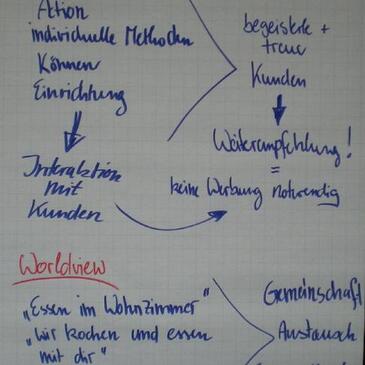 Aktion
individuelle Methoden
Können
Einrichtung
Interaktion
mit
Kunden
begeisterte +
treue
Kunden
Weiterempfehlung!
=
keine Werbung notwendig
Worldview
„Essen im Wohnzimmer"
„Wir kochen und essen
mit dir"
Gemeinschaft
Austausch